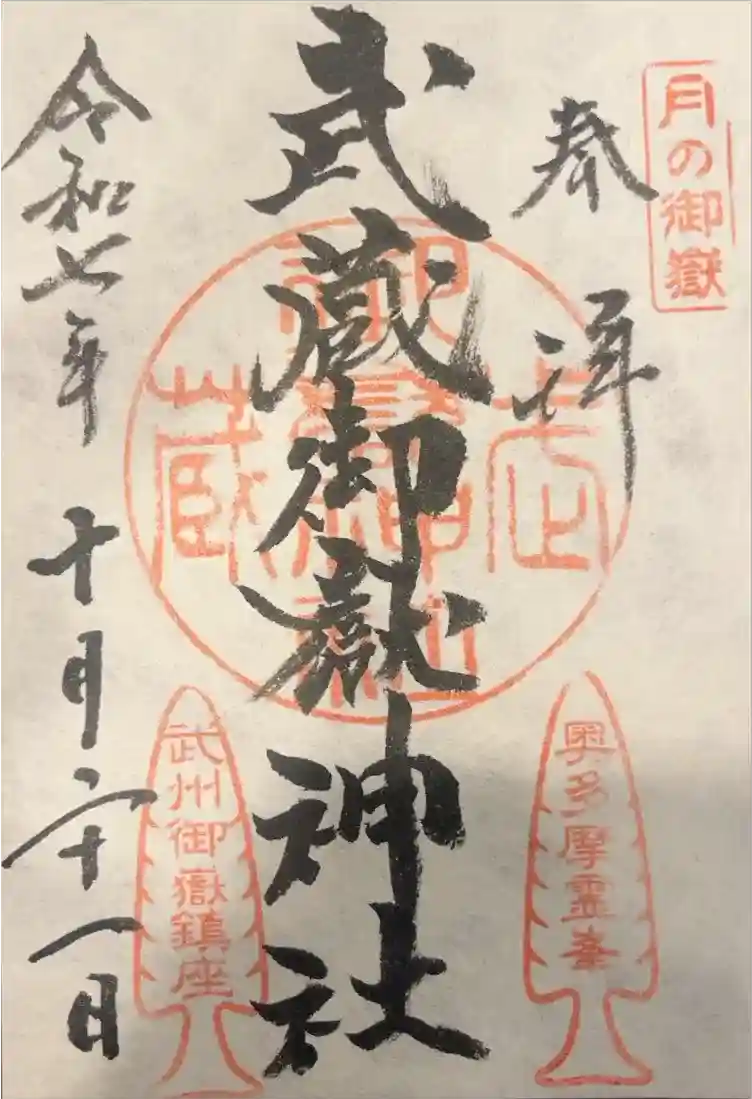 月の御嶽
奉拝
武蔵御嶽神社
武蔵
御嶽神社
奥多摩霊峯
武州御嶽鎮座
令和七年 十月二十一日